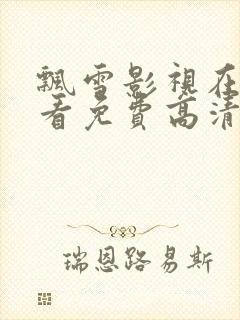 飄雪影視在
看免費高清
瑞恩路易斯